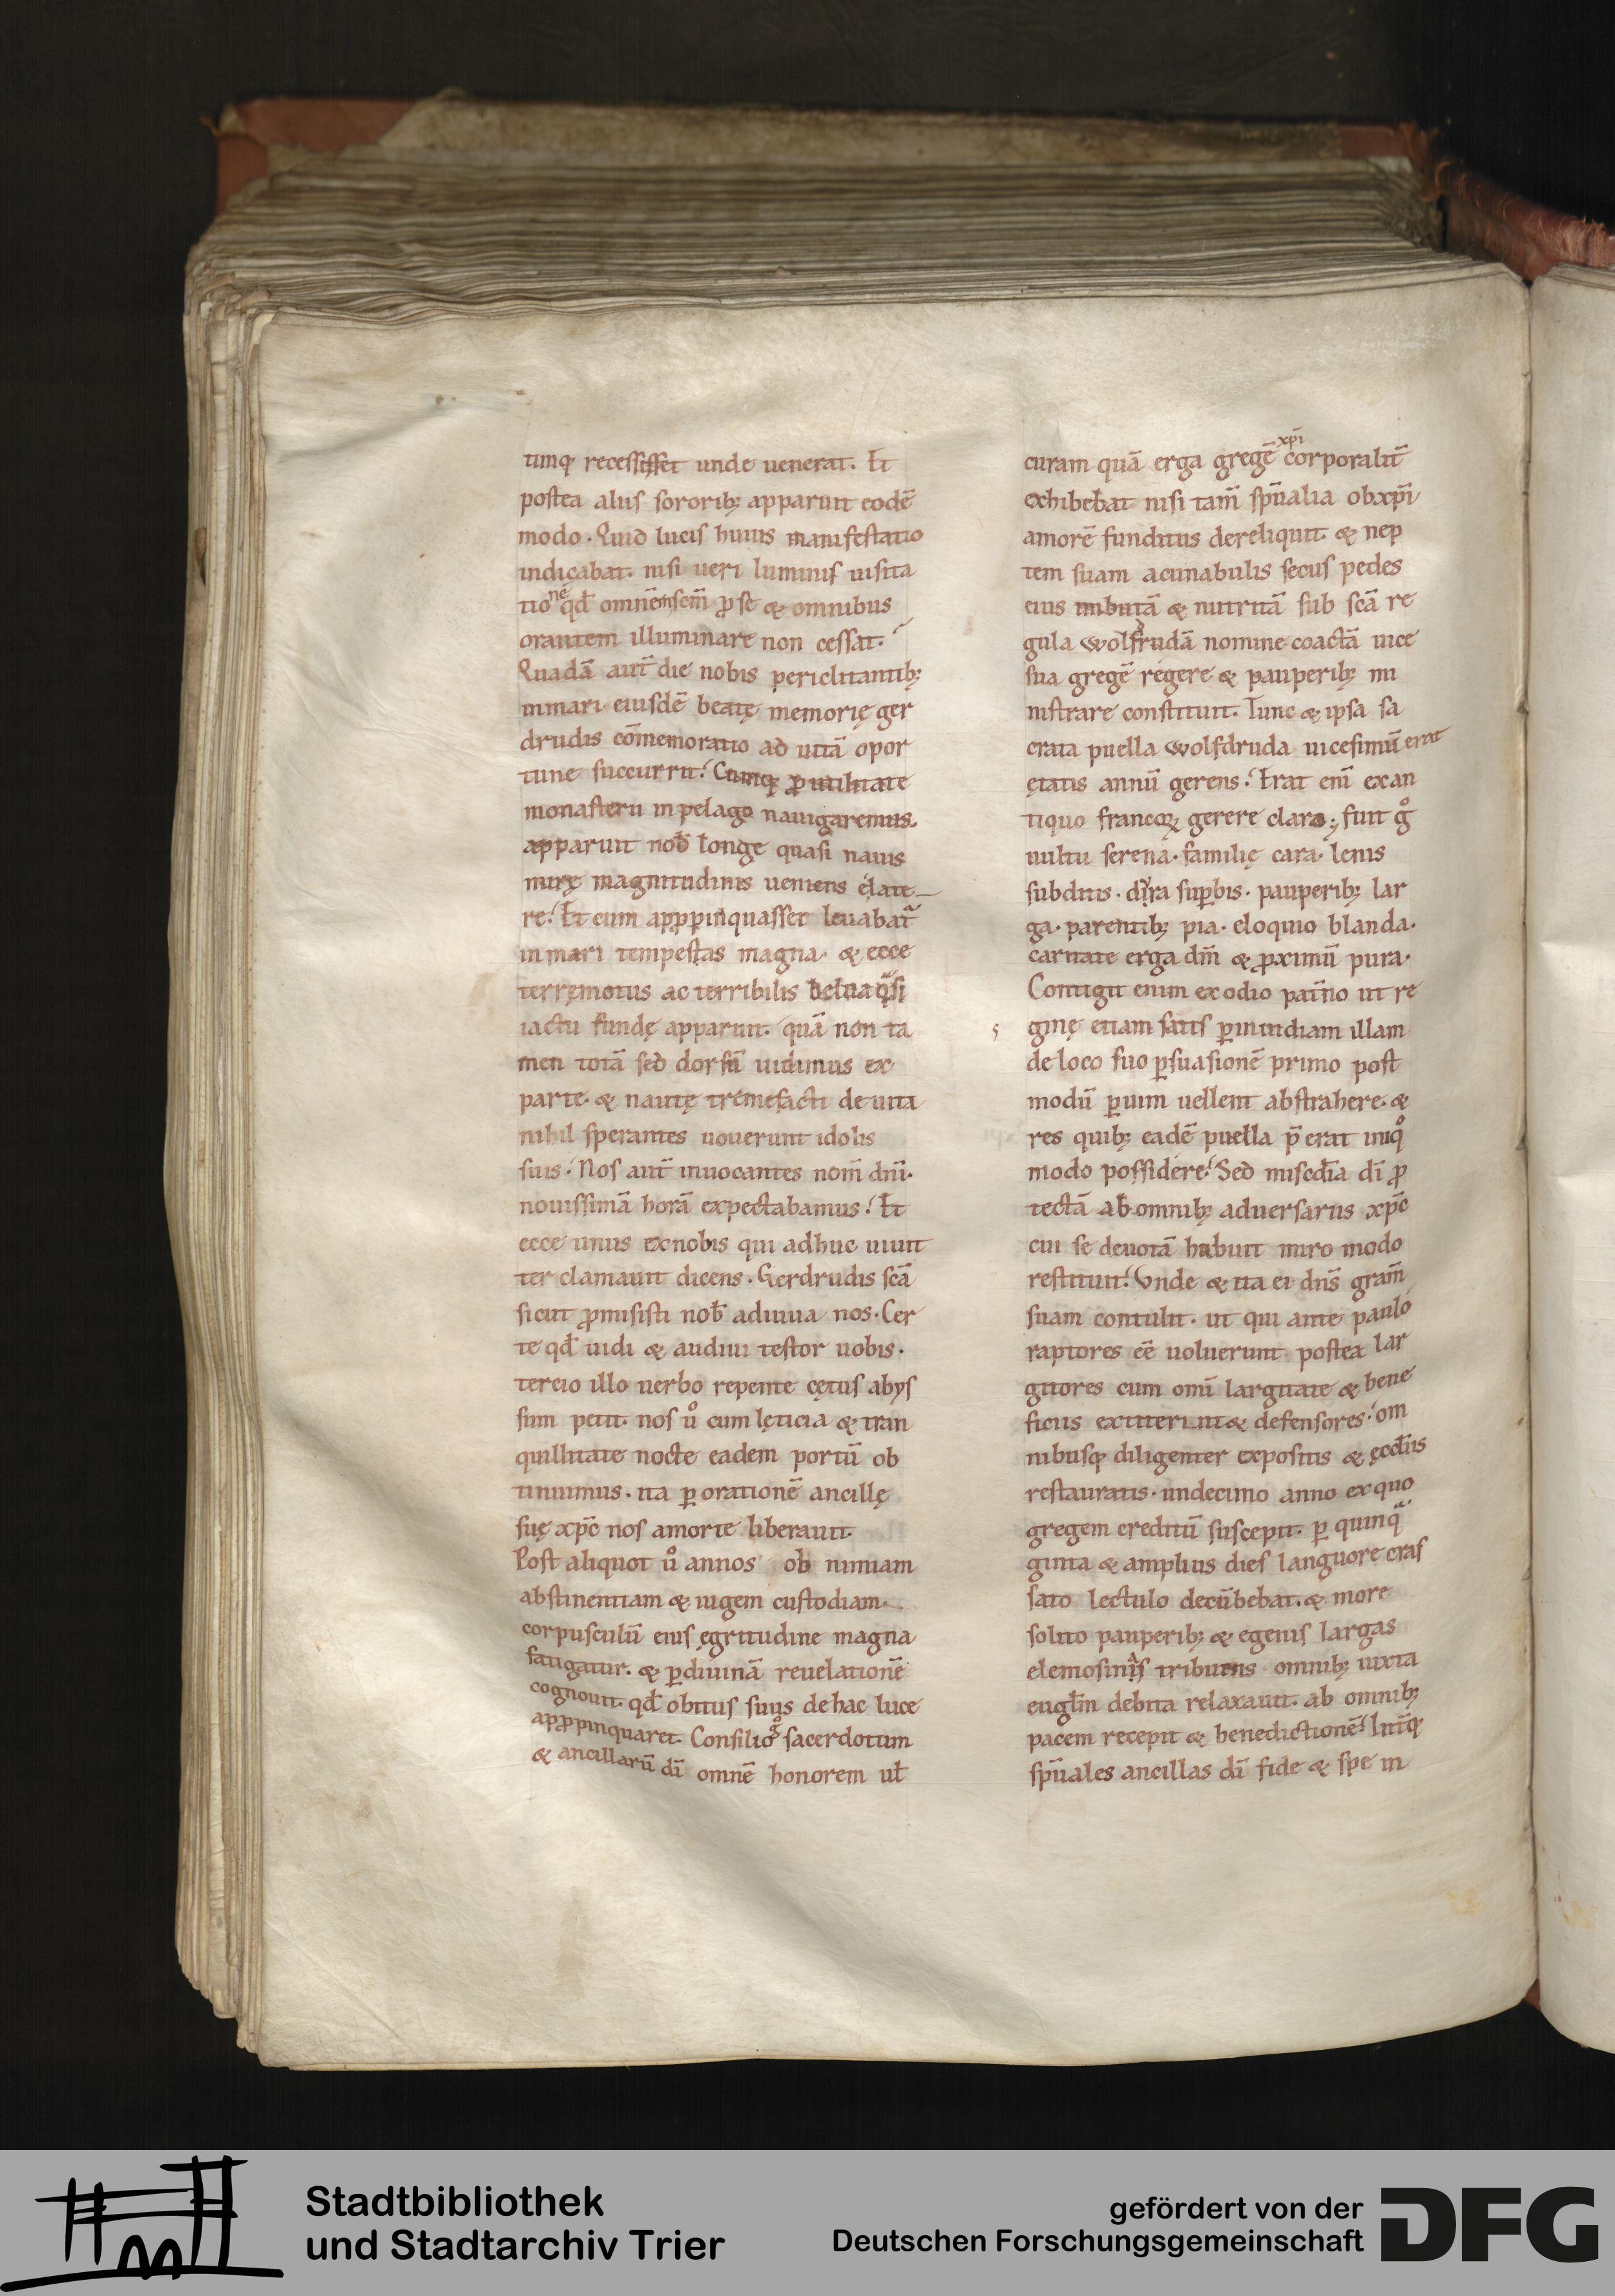 timq; recessisset unde uenerat. Et
postea aliis sororib; apparuit eodē
modo. Quid lucis huius manifestatio
indicabat. nisi ueri luminis uisita
tionē qd̄ omnēm scm̄ ꝓ se & omnibus
orantem illuminare non cessat.
Quadā aut̄ die nobis periclitantib;
in mari eiusdē beatę memorię ger
drudis cōmemoratio ad uitā opor
tune succurrit. Cumq; ꝓ utilitate
monasterii in pelago nauigaremus.
apparuit nob̄ longe quasi nauis
mirę magnitudinis ueniens élate
re. Et cum apꝓpinquasset leuabat̄
in mari tempestas magna. & ecce
terręmotus ac terribilis belua q̄si
iactu fundę apparuit. quā non ta
men totā sed dorsū uidimus ex
parte. & nautę tremefacti de uita
nihil sperantes uouerunt idolis
suis. Nos aut̄ inuocantes nom̄ dn̄i.
nouissimā horā expectabamus. Et
ecce unus ex nobis qui adhuc uiuit
ter clamauit dicens. Gerdrudis scā
sicut ꝓmisisti nob̄ adiuua nos. Cer
te qd̄ uidi & audiui testor uobis.
tercio illo uerbo repente cętus abys
sum petit. nos ů cum lęticia & tran
quillitate nocte eadem portū ob
tinuimus. ita ꝑ orationē ancillę
suę xpc̄ nos amorte liberauit.
Post aliquot ů annos ob nimiam
abstinentiam & iugem custodiam.
corpusculū eius ęgritudine magna
fatigatur. & ꝑ diuinā reuelationē
cognouit. qd̄ obitus suus de hac luce
apꝓpinquaret. Consilio sacerdotum
& ancillarū dī omnē honorem ul̄
curam quā erga gregē xp̄i corporalit̄
exhibebat nisi tam̄ sp̄ualia ob xp̄i
amorē funditus dereliquit. & nep
tem suam acunabulis secus pedes
eius imbutā & nutritā sub scā re
gula wolfdrudā nomine coactā uice
sua gregē regere & pauperib; mi
nistrare constituit. Tunc & ipsa sa
crata puella wolfdruda uicesimū erat
ętatis annū gerens. Erat eni ̄ exan
tiquo francoꝝ gerere claro; fuit g̊
uultu serena. familię cara. lenis
subditis. dira suꝑbis. pauperib; lar
ga. parentib; pia. eloquio blanda.
caritate erga dm̄ & ꝓximū pura.
Contigit enim ex odio pat̄no ut re
ginę etiam satis ꝑ inuidiam illam
de loco suo ꝑsuasionē primo post
modū ꝑ uim uellent abstrahere. &
res quib; eadē puella p̄erat iniq̊
modo possidere. Sed miscd̄ia dī ꝓ
tectā ab omnib; aduersariis xpc̄
cui se deuotā habuit miro modo
restituit. Vnde & ita ei dn̄s gram̄
suam contulit. ut qui ante paulo
raptores eē uoluerunt postea lar
gitores cum omī largitate & bene
ficiis extiterint & defensores. om
nibusq; diligenter expositis & ęccl̄iis
restauratis. undecimo anno ex quo
gregem creditū suscepit. ꝑ quinq̄
ginta & amplius dies languore cras
sato lectulo decūbebat. & more
solito pauperib; & egenis largas
elemosinas tribuens omnib; iuxta
eugl̄m debita relaxauit. ab omnib;
pacem recepit & benedictionē. Int̄q;
sp̄uales ancillas dī fide & spe in
Stadtbibliothek
und Stadtarchiv Trier
gefördert von der
Deutschen Forschungsgemeinschaft
DFG